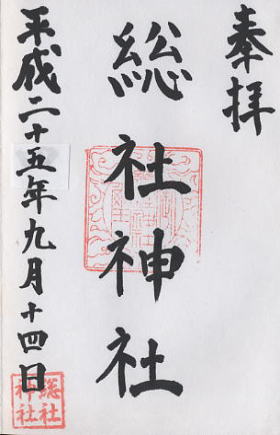 奉拝
総社神社
平成二十五年九月十四日
総社
神社